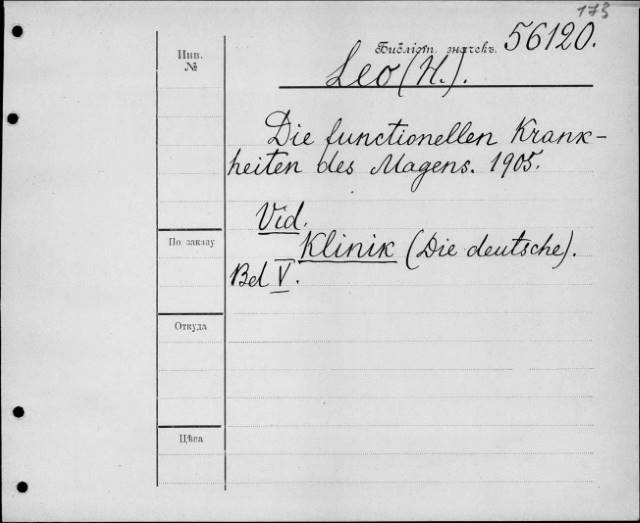 173
Библіот. значекъ. 56120.
Инв.
№
Leo (H.).
Die functionellen Krank-
heiten des Magens. 1905.
Vid.
Klinik (Die deutsche).
Bd V.
По заказу
Откуда
Цѣна